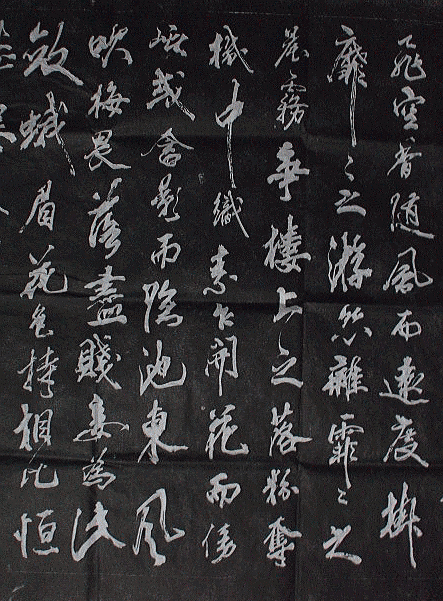 飛空香隨風而遠度掛
靡〻之游絲雜霏〻之
晨霧爭樓上之落粉奪
機中織素乍開花而傍
或含影而臨池東風
吹梅畏落盡賤妾為此
斂蛾眉花色持相比恒